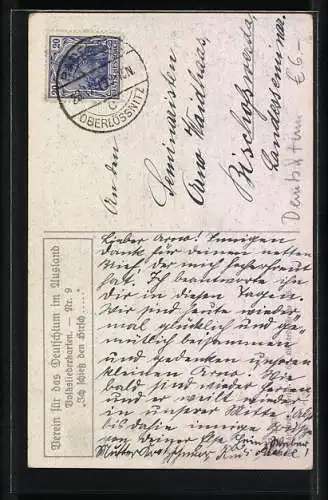 20 20
OBERLÖSSNITZ
An den
Seminaristen
Arno
Bischofswerda,
Landesseminar.
€ 6.-
Verein für das Deutschtum im Ausland
Volksliedkarten. — Nr. 9
„Ich schieß den Hirsch ....."
Lieber Arno! Innigen
Dank für deinen netten
Brief, der mich sehr erfreut
hat. Ich beantworte ihn
Dir in diesen Tagen.
Wir sind heute wieder
mal glücklich und ge-
mütlich beisammen
und gedenken unseres
kleinen Arno. Wie
bald sind wieder Ferien
und er weilt wieder
in unserer Mitte!
innige
von Deiner
Mutter